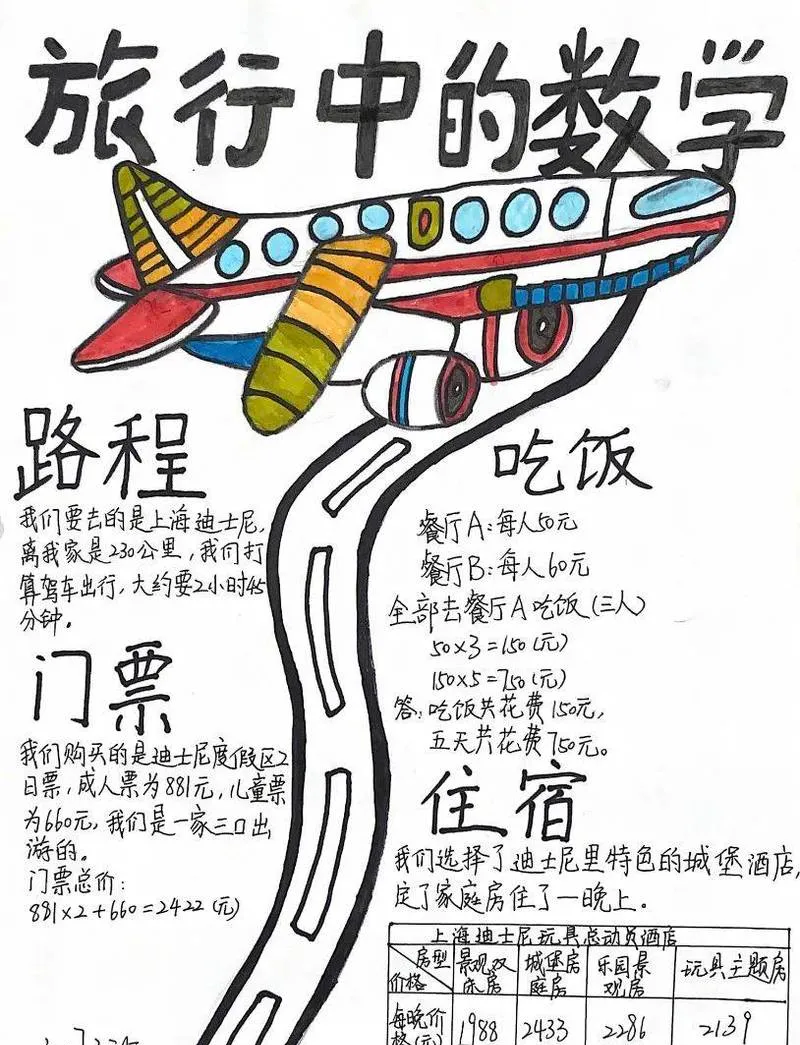 旅行中的数学
路程
我们要去的是上海迪士尼,
离我家是230公里,我们打
算驾车出行,大约要2小时45
分钟。
门票
我们购买的是迪士尼度假区2
日票,成人票为881元,儿童票
为660元,我们是一家三口出
游的。
门票总价:
881×2+660=2422(元)
吃饭
餐厅A:每人50元
餐厅B:每人60元
全部去餐厅A吃饭(三人)
50×3=150(元)
150×5=750(元)
答:吃饭共花费150元,
五天共花费750元。
住宿
我们选择了迪士尼里特色的城堡酒店,
定了家庭房住了一晚上。
上海迪士尼玩具总动员酒店
房型 价格 景观双床房 城堡房庭房 乐园景观房 玩具主题房
每晚价格(元) 1988 2433 2286 2139